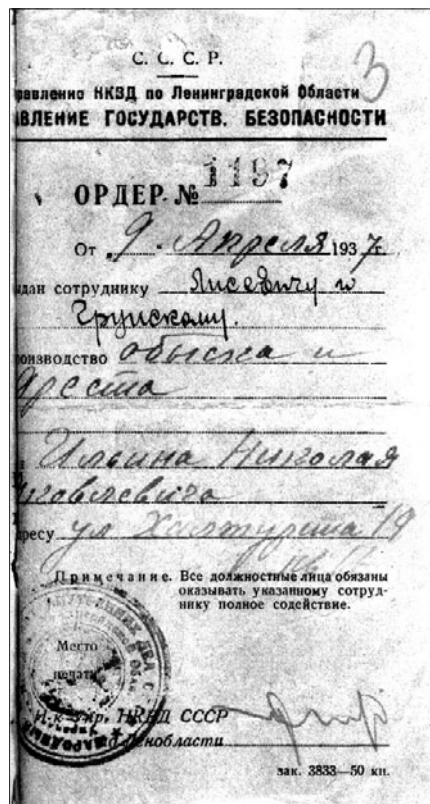 3
С. С. С. Р.
равление НКВД по Ленинградской Области
АВЛЕНИЕ ГОСУДАРСТВ. БЕЗОПАСНОСТИ
ОРДЕР № 1197
От „9“ Апреля 1937 г.
ыдан сотруднику Лисевичу и
Грунскому.
роизводство обыска и
Ареста
Ильина Николая
ковлевича
дресу ул Халтурина 19
кв
Примечание. Все должностные лица обязаны
оказывать указанному сотруд-
нику полное содействие.
Место
печати
Н-к Упр. НКВД СССР
Ленобласти
зак. 3833—50 кн.